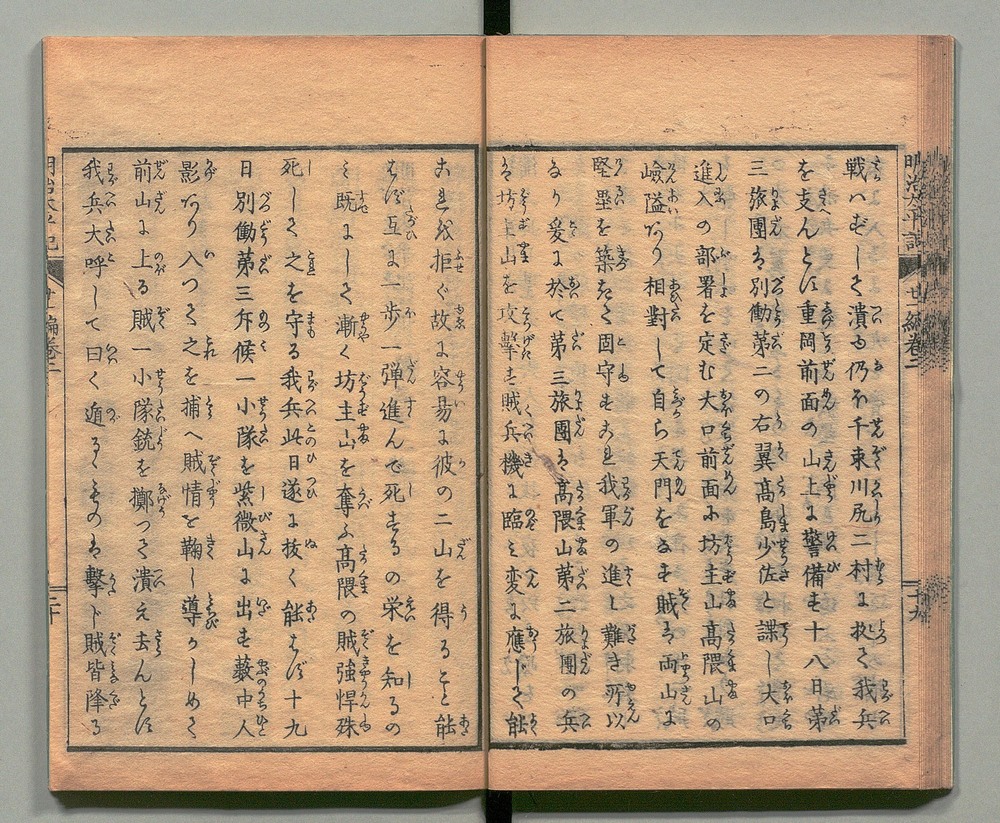 戦ハむして潰ゆ仍ほ千束川尻二村に拠て我兵
を支んとに重岡前面の山上に警備す十八日第
三旅團は別働第二の右翼高島少佐と謀し大口
進入の部署を定む大口前面に坊主山高隈山の
嶮隘あり相對して自ら天門をなす賊は両山に
堅塁を築きて固守す是我軍の進し難き所以
なり爰に於て第三旅團は高隈山第二旅團の兵
は坊主山を攻撃す賊兵機に臨ミ変に應じて能
これを拒ぐ故に容易に彼の二山を得ること能
はず互に一歩一弾進んで死するの栄を知るの
ミ既にして漸く坊主山を奪ふ高隈の賊強悍殊
死して之を守る我兵此日遂に抜く能はず十九
日別働第三斥候一小隊を紫微山に出す藪中人
影あり入つて之を捕へ賊情を鞠し導かしめて
前山に上る賊一小隊銃を擲つて潰え去んとに
我兵大呼して曰く遁るゝものは撃ト賊皆降る